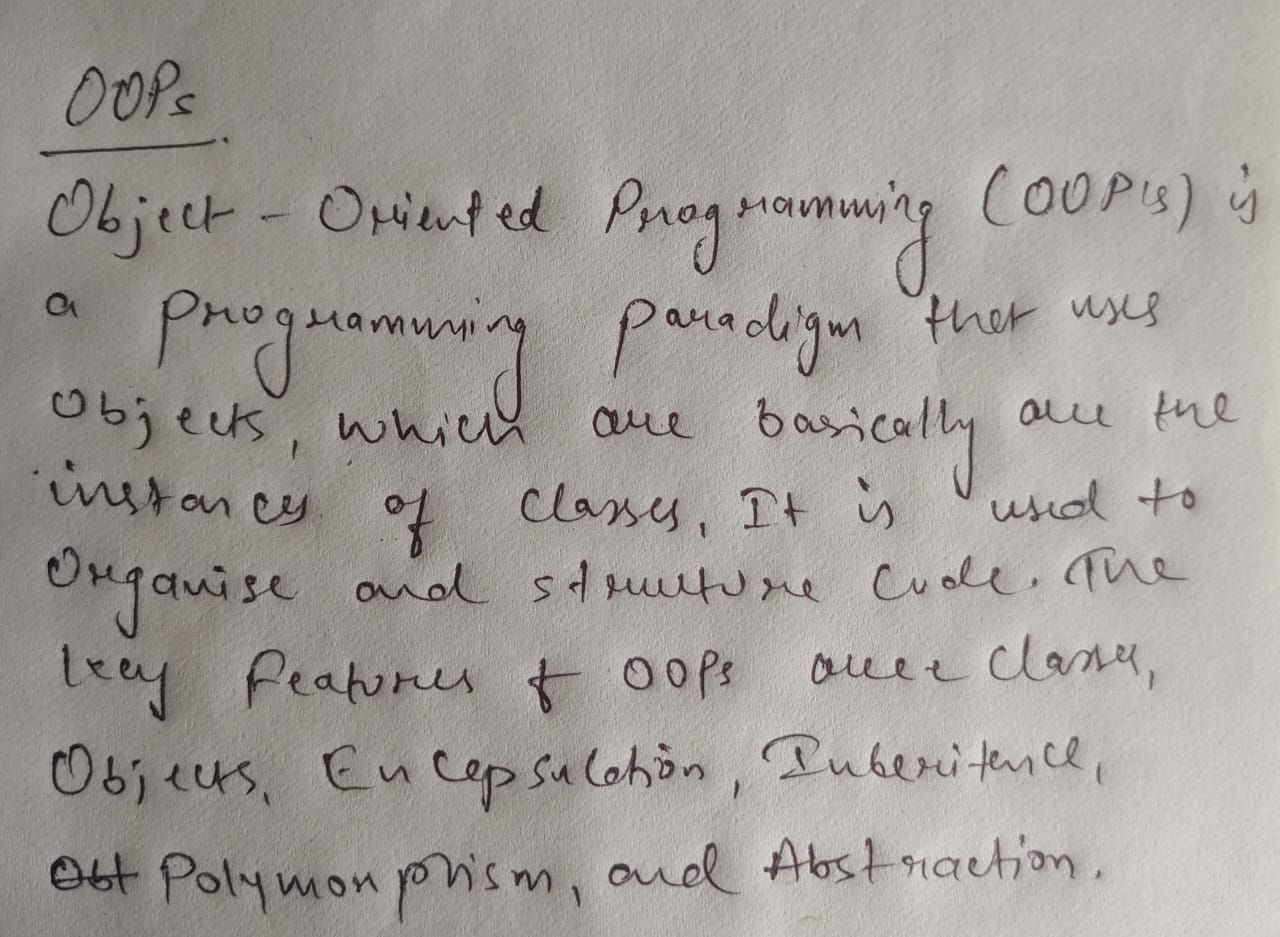 OOPs
Object - Oriented Programming (OOPs) is
a programming paradigm that uses
Objects, which are basically are the
instances of classes, It is used to
Organise and structure code. The
key features of OOPs are classes,
Objects, Encapsulation, Inheritence,
Polymorphism, and Abstraction.